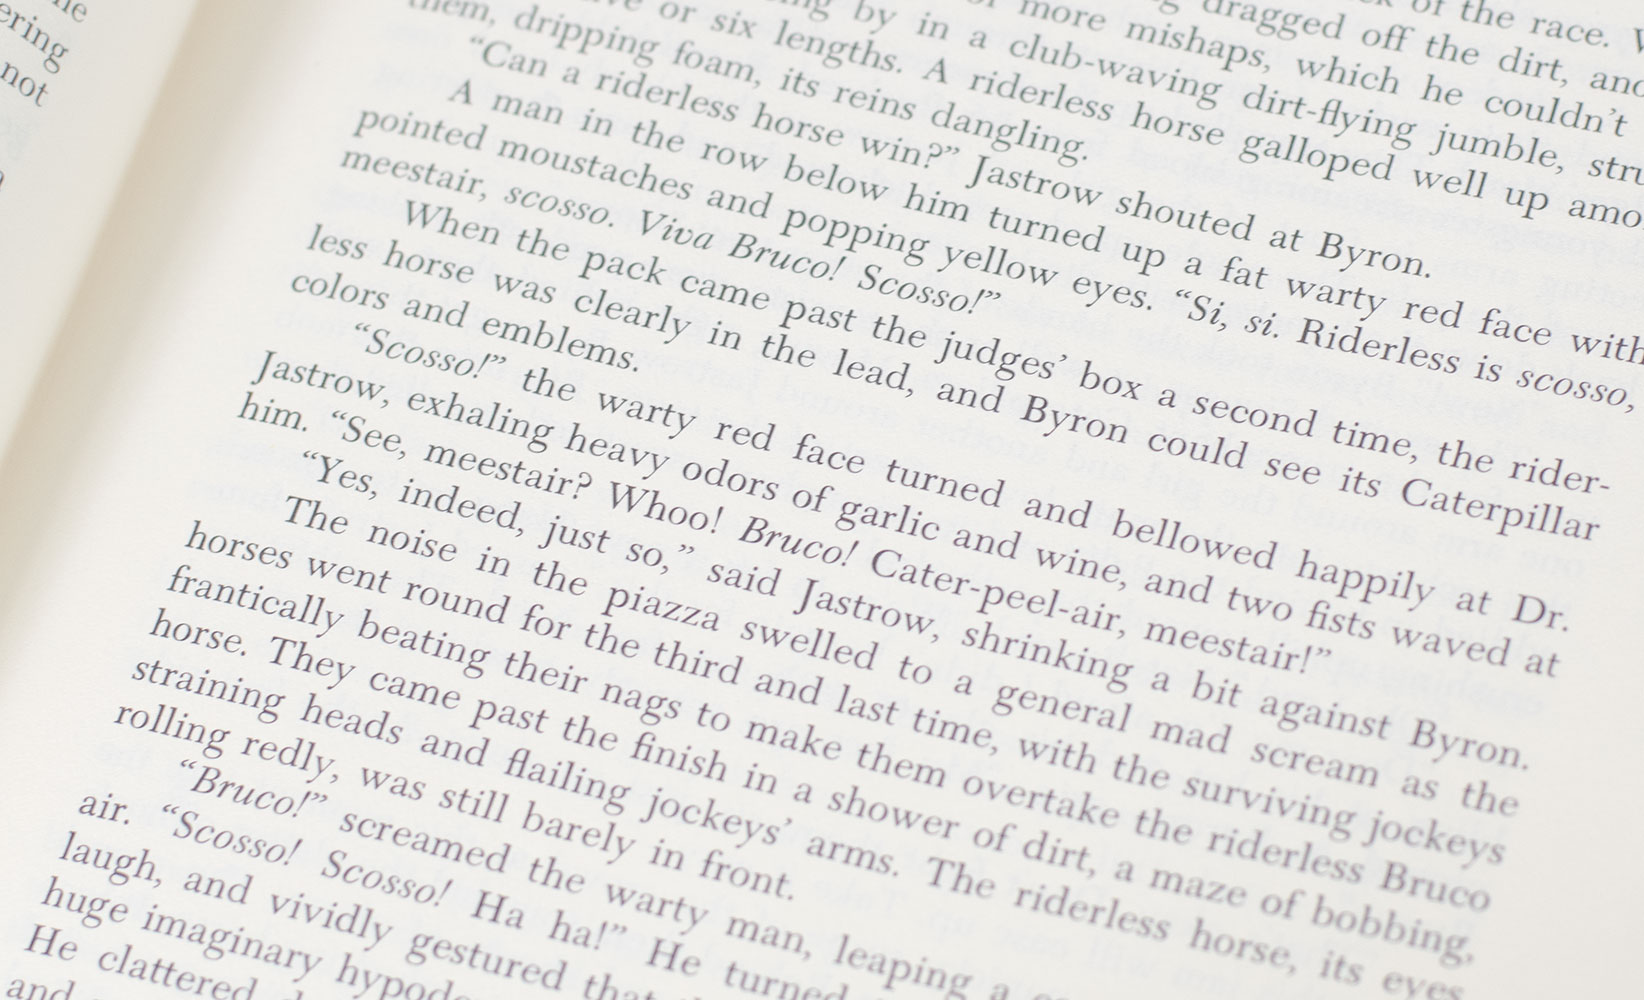 ering
not
of the race.
dragged off the dirt, and
of more mishaps, which he couldn't
by in a club-waving dirt-flying jumble,
or six lengths. A riderless horse galloped well up
them, dripping foam, its reins dangling.
“Can a riderless horse win?” Jastrow shouted at Byron.
A man in the row below him turned up a fat warty red face with
pointed moustaches and popping yellow eyes. “Si, si. Riderless is scosso,
meestair, scosso. Viva Bruco! Scosso!”
When the pack came past the judges’ box a second time, the rider-
less horse was clearly in the lead, and Byron could see its Caterpillar
colors and emblems.
“Scosso!” the warty red face turned and bellowed happily at Dr.
Jastrow, exhaling heavy odors of garlic and wine, and two fists waved at
him. “See, meestair? Whoo! Bruco! Cater-peel-air, meestair!”
“Yes, indeed, just so,” said Jastrow, shrinking a bit against Byron.
The noise in the piazza swelled to a general mad scream as the
horses went round for the third and last time, with the surviving jockeys
frantically beating their nags to make them overtake the riderless Bruco
horse. They came past the finish in a shower of dirt, a maze of bobbing,
straining heads and flailing jockeys’ arms. The riderless horse, its eyes
rolling redly, was still barely in front.
“Bruco!” screamed the warty man, leaping a
air. “Scosso! Scosso! Ha ha!” He turned
laugh, and vividly gestured that
huge imaginary
He clattered
and